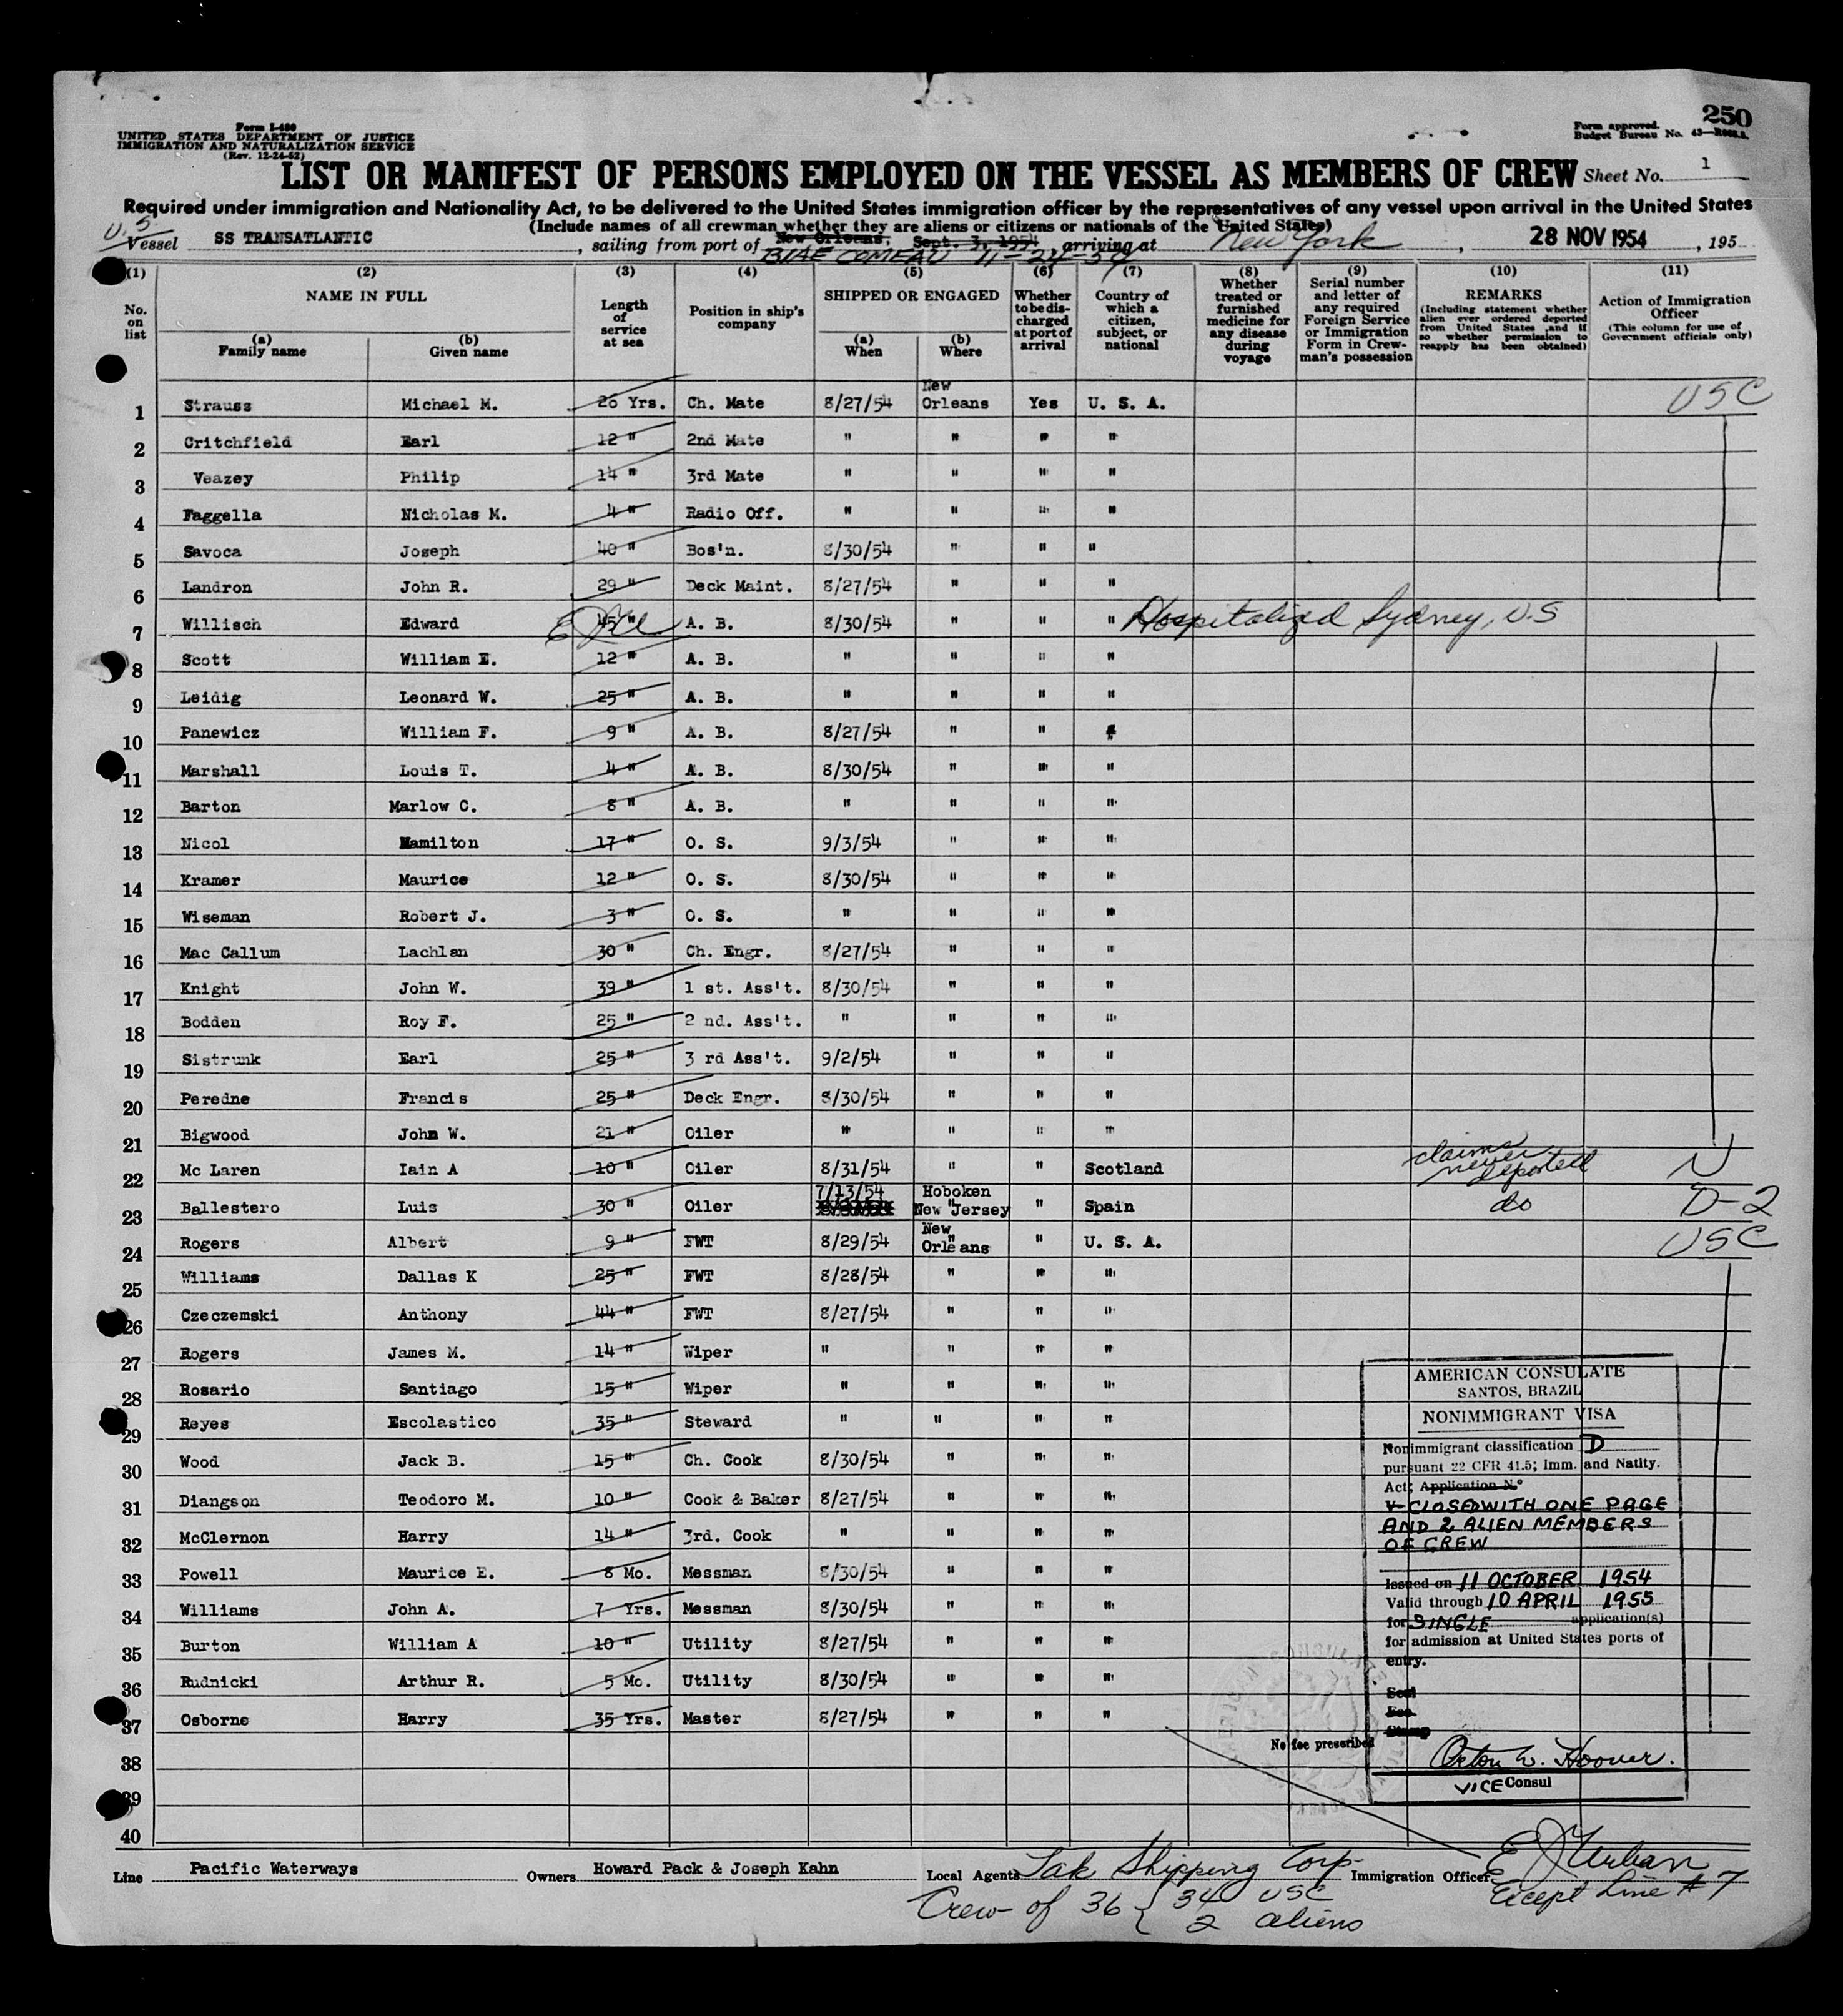 250
Form I-480
UNITED STATES DEPARTMENT OF JUSTICE
IMMIGRATION AND NATURALIZATION SERVICE
(Rev. 12-24-52)
Form approved.
Budget Bureau No. 43—
LIST OR MANIFEST OF PERSONS EMPLOYED ON THE VESSEL AS MEMBERS OF CREW Sheet No. 1
Required under immigration and Nationality Act, to be delivered to the United States immigration officer by the representatives of any vessel upon arrival in the United States
(Include names of all crewman whether they are aliens or citizens or nationals of the United States)
U.S.
Vessel SS TRANSATLANTIC, sailing from port of New Orleans, Sept. 3, 1954, arriving at New York, 28 NOV 1954, 195
BIAE COMEAU 11-24-54
(1) (2) (3) (4) (5) (6) (7) (8) (9) (10) (11)
No. on list
NAME IN FULL
(a) Family name
(b) Given name
Length of service at sea
Position in ship's company
SHIPPED OR ENGAGED
(a) When
(b) Where
Whether to be discharged at port of arrival
Country of which a citizen, subject, or national
Whether treated or furnished medicine for any disease during voyage
Serial number and letter of any required Foreign Service or Immigration Form in Crewman's possession
REMARKS
(Including statement whether alien ever ordered deported from United States and if so whether permission to reapply has been obtained)
Action of Immigration Officer
(This column for use of Government officials only)
1 Strauss Michael M. 26 Yrs. Ch. Mate 8/27/54 New Orleans Yes U. S. A. USC
2 Critchfield Earl 12 " 2nd Mate " " " "
3 Veazey Philip 14 " 3rd Mate " " " "
4 Faggella Nicholas M. 4 " Radio Off. " " " "
5 Savoca Joseph 40 " Bos'n. 8/30/54 " " "
6 Landron John R. 29 " Deck Maint. 8/27/54 " " "
7 Willisch Edward 45 " A. B. 8/30/54 " " " Hospitalized Sydney, N.S
8 Scott William E. 12 " A. B. " " " "
9 Leidig Leonard W. 25 " A. B. " " " "
10 Panewicz William F. 9 " A. B. 8/27/54 " " "
11 Marshall Louis T. 4 " A. B. 8/30/54 " " "
12 Barton Marlow C. 8 " A. B. " " " "
13 Nicol Hamilton 17 " O. S. 9/3/54 " " "
14 Kramer Maurice 12 " O. S. 8/30/54 " " "
15 Wiseman Robert J. 3 " O. S. " " " "
16 Mac Callum Lachlan 30 " Ch. Engr. 8/27/54 " " "
17 Knight John W. 39 " 1 st. Ass't. 8/30/54 " " "
18 Bodden Roy F. 25 " 2 nd. Ass't. " " " "
19 Sistrunk Earl 25 " 3 rd Ass't. 9/2/54 " " "
20 Peredne Francis 25 " Deck Engr. 8/30/54 " " "
21 Bigwood John W. 21 " Oiler " " " "
22 Mc Laren Iain A 10 " Oiler 8/31/54 " " Scotland claims never deported N
23 Ballestero Luis 30 " Oiler 7/13/54 Hoboken New Jersey " Spain do D-2
24 Rogers Albert 9 " FWT 8/29/54 New Orleans " U. S. A. USC
25 Williams Dallas K 25 " FWT 8/28/54 " " "
26 Czeczemski Anthony 44 " FWT 8/27/54 " " "
27 Rogers James M. 14 " Wiper " " " "
28 Rosario Santiago 15 " Wiper " " " "
29 Reyes Escolastico 35 " Steward " " " "
30 Wood Jack B. 15 " Ch. Cook 8/30/54 " " "
31 Diangson Teodoro M. 10 " Cook & Baker 8/27/54 " " "
32 McClernon Harry 14 " 3rd. Cook " " " "
33 Powell Maurice E. 8 Mo. Messman 8/30/54 " " "
34 Williams John A. 7 Yrs. Messman 8/30/54 " " "
35 Burton William A 10 " Utility 8/27/54 " " "
36 Rudnicki Arthur R. 5 Mo. Utility 8/30/54 " " "
37 Osborne Harry 35 Yrs. Master 8/27/54 " " "
38
39
40
AMERICAN CONSULATE
SANTOS, BRAZIL
NONIMMIGRANT VISA
Nonimmigrant classification D
pursuant 22 CFR 41.5; Imm. and Natlty.
Act; Application No
CLOSED WITH ONE PAGE
AND 2 ALIEN MEMBERS
OF CREW
Issued on 11 OCTOBER 1954
Valid through 10 APRIL 1955
for SINGLE application(s)
for admission at United States ports of
entry.
Seal
Fee
Stamp
No fee prescribed
Orton W. Hoover.
VICE Consul
Line Pacific Waterways Owners Howard Pack & Joseph Kahn Local Agents Tak Shipping Corp. Immigration Officer E J Urban
Except Line #7
Crew of 36 { 34 USC
2 aliens